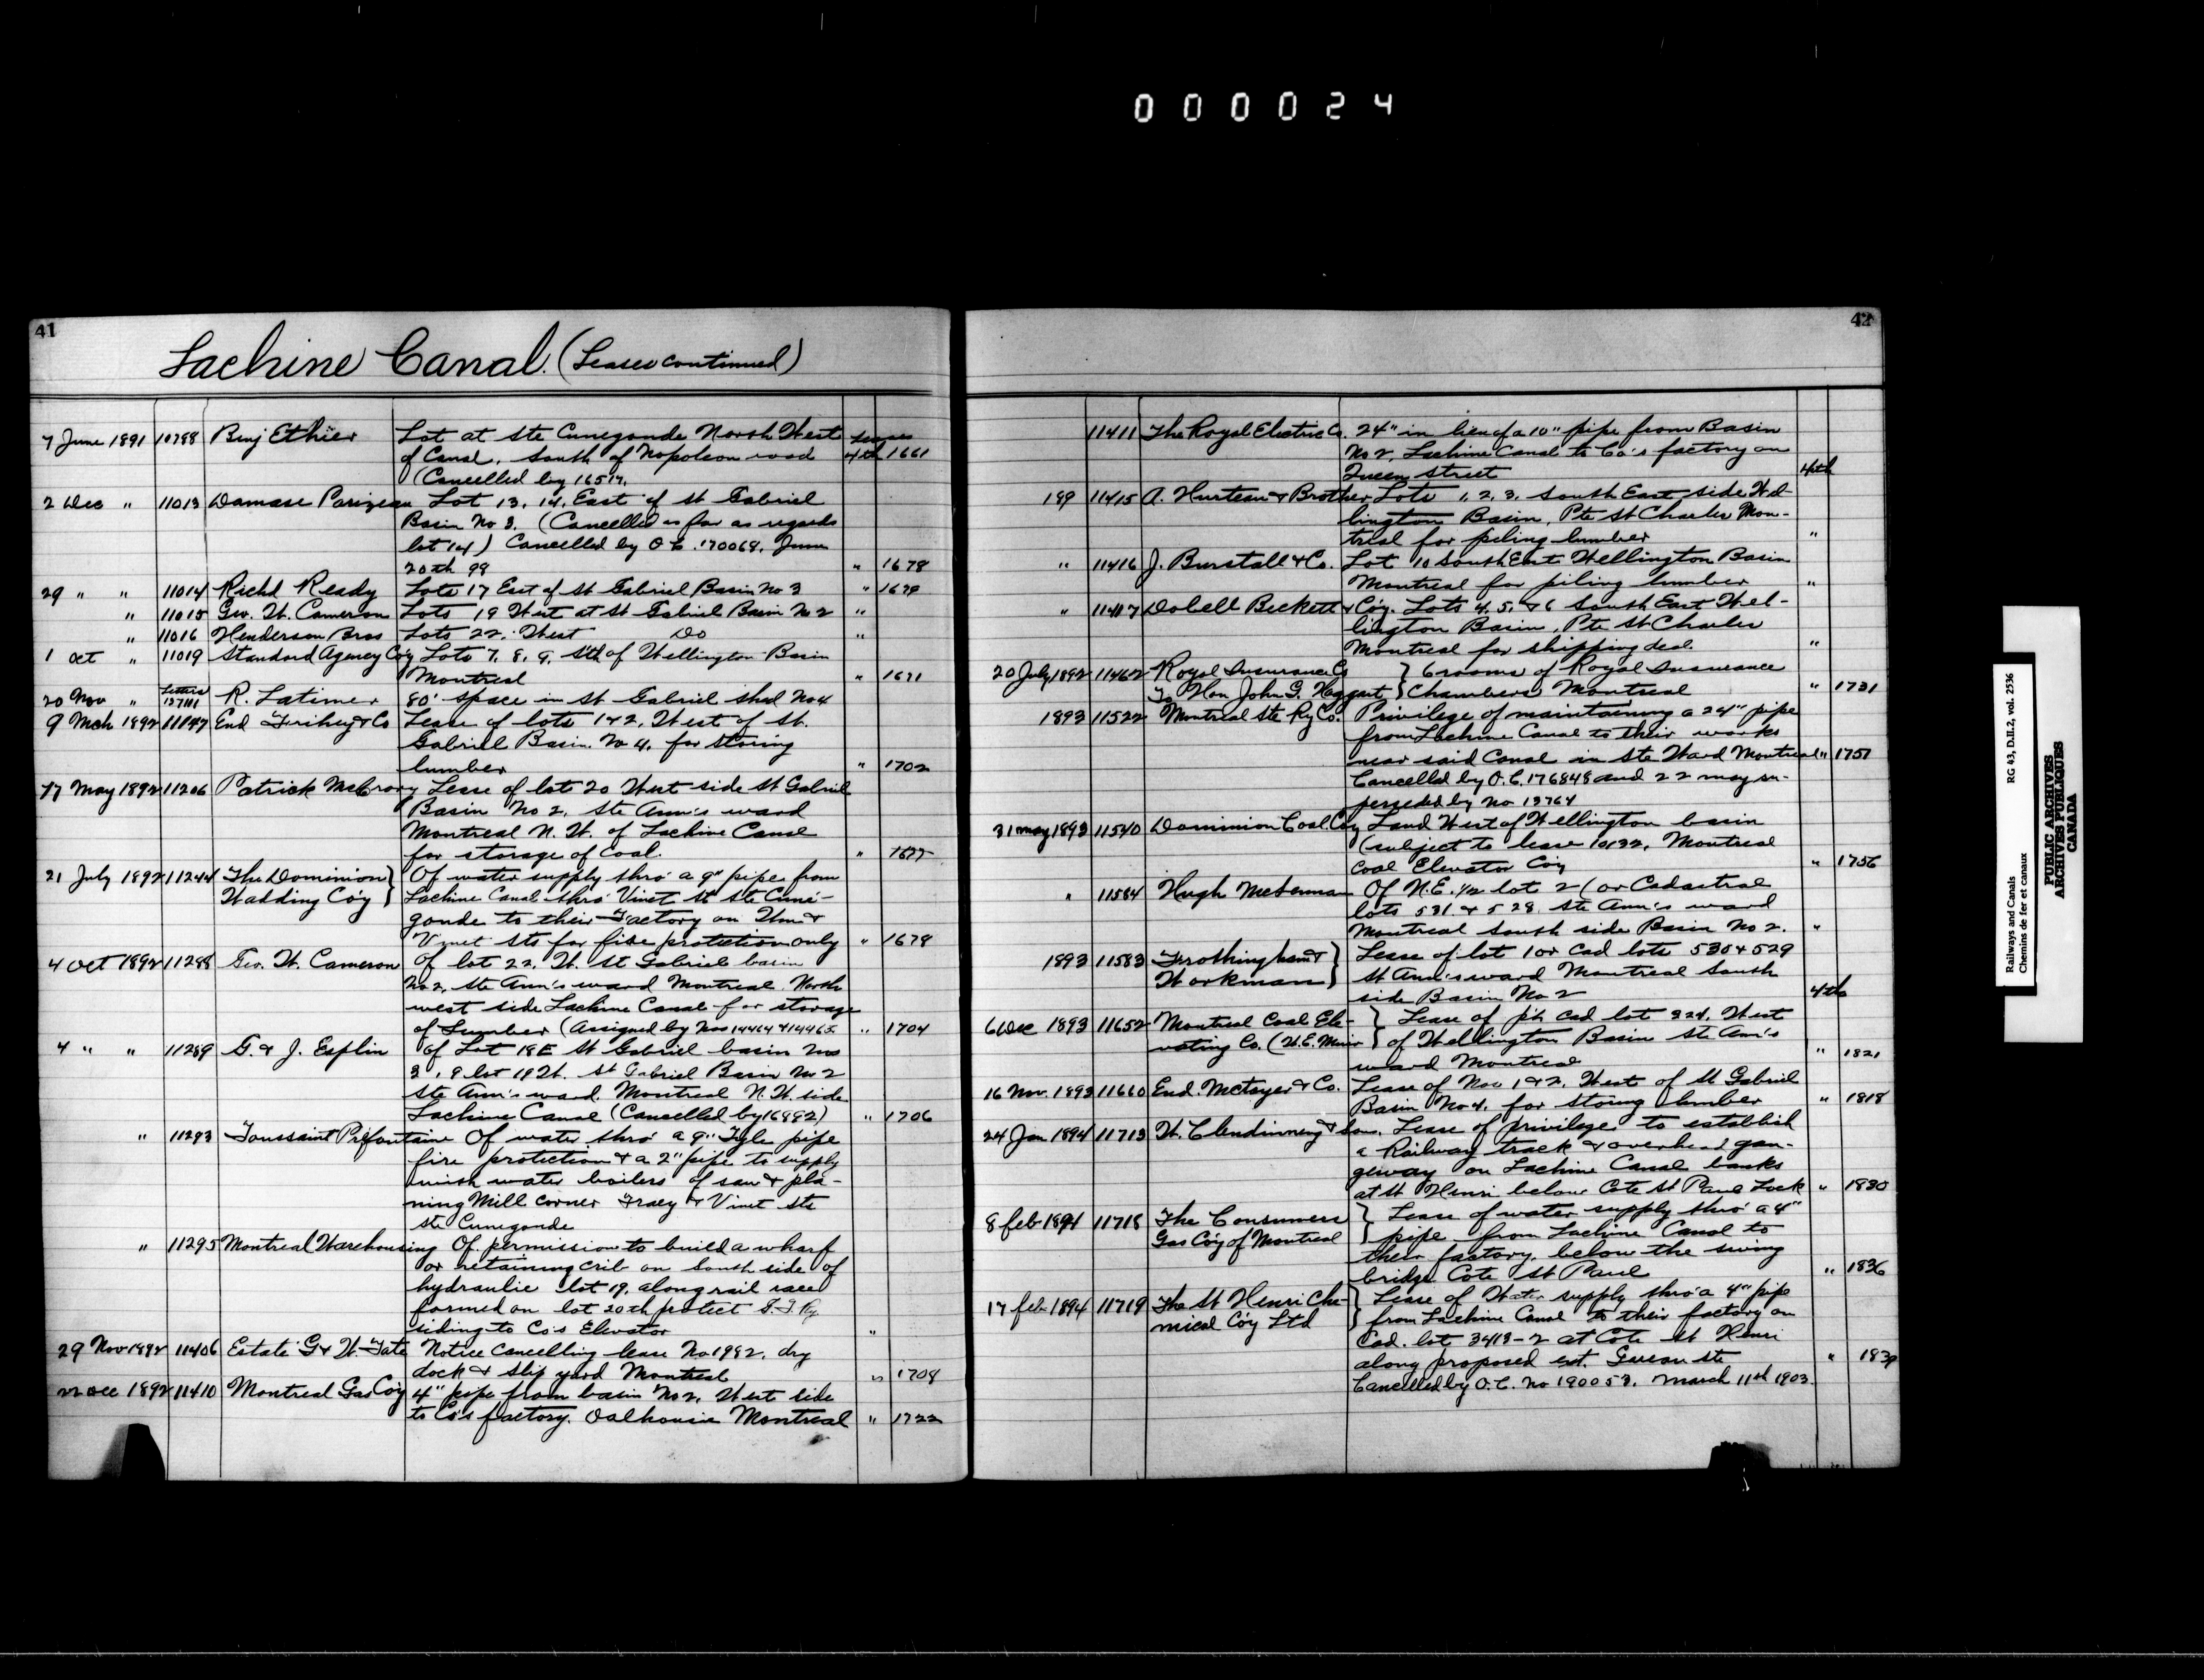 000024
41
Lachine Canal. (Leases continued)
7 June 1891 10788 Benj Ethier Lot at Ste Cunegonde North West
of Canal, South of Napoleon road 4th 1661
(Cancelled by 16517.
2 Dec " 11013 Damase Parizeau Lot 13. 14. East of St Gabriel
Basin No 3. (Cancelled as far as regards
lot 14) Cancelled by O.C. 170069. June
20th 99 " 1678
29 " " 11014 Richd Ready Lots 17 East of St Gabriel Basin No 3 " 1679
" 11015 Geo. W. Cameron Lots 19 West at St Gabriel Basin No 2 "
" 11016 Henderson Bros Lots 22. West Do "
1 Oct " 11019 Standard Agency Co'y Lots 7. 8. 9. Sth of Wellington Basin
Montreal " 1671
20 Nov " Letters 127111 R. Latimer 80' space in St Gabriel shed No 4
9 Mch 1892 11147 End Trihey & Co Lease of lots 1 & 2. West of St.
Gabriel Basin. No 4. for storing
lumber " 1702
17 May 1892 11206 Patrick McCrory Lease of lot 20 West side St Gabriel
Basin No 2. Ste Ann's ward
Montreal N. W. of Lachine Canal
for storage of Coal. " 1677
21 July 1892 11244 The Dominion } Of water supply thro' a 9" pipe from
Wadding Co'y } Lachine Canal thro' Vinet St Ste Cune-
gonde to their Factory on Wm &
Vinet Sts for fire protection only " 1679
4 Oct 1892 11288 Geo. W. Cameron Of lot 22. W. St Gabriel basin
No 2, Ste Ann's ward Montreal. North
west side Lachine Canal for storage
of Lumber (Assigned by Nos 14464 & 14465 " 1704
4 " " 11289 G. & J. Esplin Of Lot 18E St Gabriel basin No
3, & lot 19 W. St Gabriel Basin No 2
Ste Ann's ward. Montreal N. W. side
Lachine Canal (Cancelled by 16892) " 1706
" 11293 Toussaint Prefontaine Of water thro' a 9" pipe
fire protection & a 2" pipe to supply
with water boilers of saw & pla-
ning Mill corner Tracy & Vinet sts
Ste Cunegonde
" 11295 Montreal Warehousing Of permission to build a wharf
or retaining crib on South side of
hydraulic lot 19. along rail race
formed on lot 20 th protect G.T.Ry
siding to Co's Elevator "
29 Nov 1892 11406 Estate G & W. Tate Notice Cancelling lease No 1982. dry
dock & slip yard Montreal " 1708
22 Dec 1892 11410 Montreal Gas Co'y 4" pipe from basin No 2. West side
to Co's factory. Dalhousie Montreal " 1722
42
11411 The Royal Electric Co. 24" in lieu of a 10" pipe from Basin
No 2, Lachine Canal to Co's factory on
Queen Street 4th
189 11415 A. Hurteau & Brother Lots 1. 2. 3. South East side Wel-
lington Basin, Pte St Charles Mon-
treal for piling lumber "
" 11416 J. Burstall & Co. Lot 10 South East Wellington Basin
Montreal for piling lumber "
" 11417 Dobell Beckett & Co'y. Lots 4. 5. & 6 South East Wel-
lington Basin, Pte St Charles
Montreal for shipping deal. "
20 July 1892 11462 Royal Insurance Co } 6 rooms of Royal Insurance
To Hon John G. Haggart } Chambers Montreal " 1731
1893 11522 Montreal Ste Ry Co. Privilege of maintaining a 24" pipe
from Lachine Canal to their works
near said Canal in Ste Ward Montreal " 1751
Cancelled by O.C. 176848 and 22 may su-
perseded by no 13764
31 may 1893 11540 Dominion Coal Co'y Land West of Wellington basin
(subject to lease 10132. Montreal
Coal Elevator Co'y " 1756
" 11584 Hugh McLennan Of N.E. 1/2 lot 2 (or Cadastral
lots 531. & 528. Ste Ann's ward
Montreal South side Basin No 2. "
1893 11583 Frothingham & } Lease of lot 1 or Cad lots 530 & 529
Workman } St Ann's ward Montreal South
side Basin No 2 4th
6 Dec 1893 11652 Montreal Coal Ele- } Lease of pt Cad lot 324. West
vating Co. (H.E. Muir } of Wellington Basin Ste Ann's
ward Montreal " 1821
16 Nov. 1893 11660 End. McTayer & Co. Lease of Nos 1 & 2. West of St Gabriel
Basin No 4. for storing lumber " 1818
24 Jan 1894 11713 W. Clendinneng & Son. Lease of privilege to establish
a Railway track & overhead gan-
geway on Lachine Canal banks
at St Henri below Cote St Paul Lock " 1830
8 feb 1894 11718 The Consumers } Lease of water supply thro' a 4"
Gas Co'y of Montreal } pipe from Lachine Canal to
their factory below the swing
bridge Cote St Paul " 1836
17 feb 1894 11719 The St Henri Che- } Lease of Water supply thro' a 4" pipe
mical Co'y Ltd } from Lachine Canal to their factory on
Cad. lot 3413-2 at Cote St Henri
along proposed ext. St
Cancelled by O.C. no 190053. March 11th 1903.
" 1839
Railways and Canals RG 43, D.II.2, vol. 2536
Chemins de fer et canaux
PUBLIC ARCHIVES
ARCHIVES PUBLIQUES
CANADA